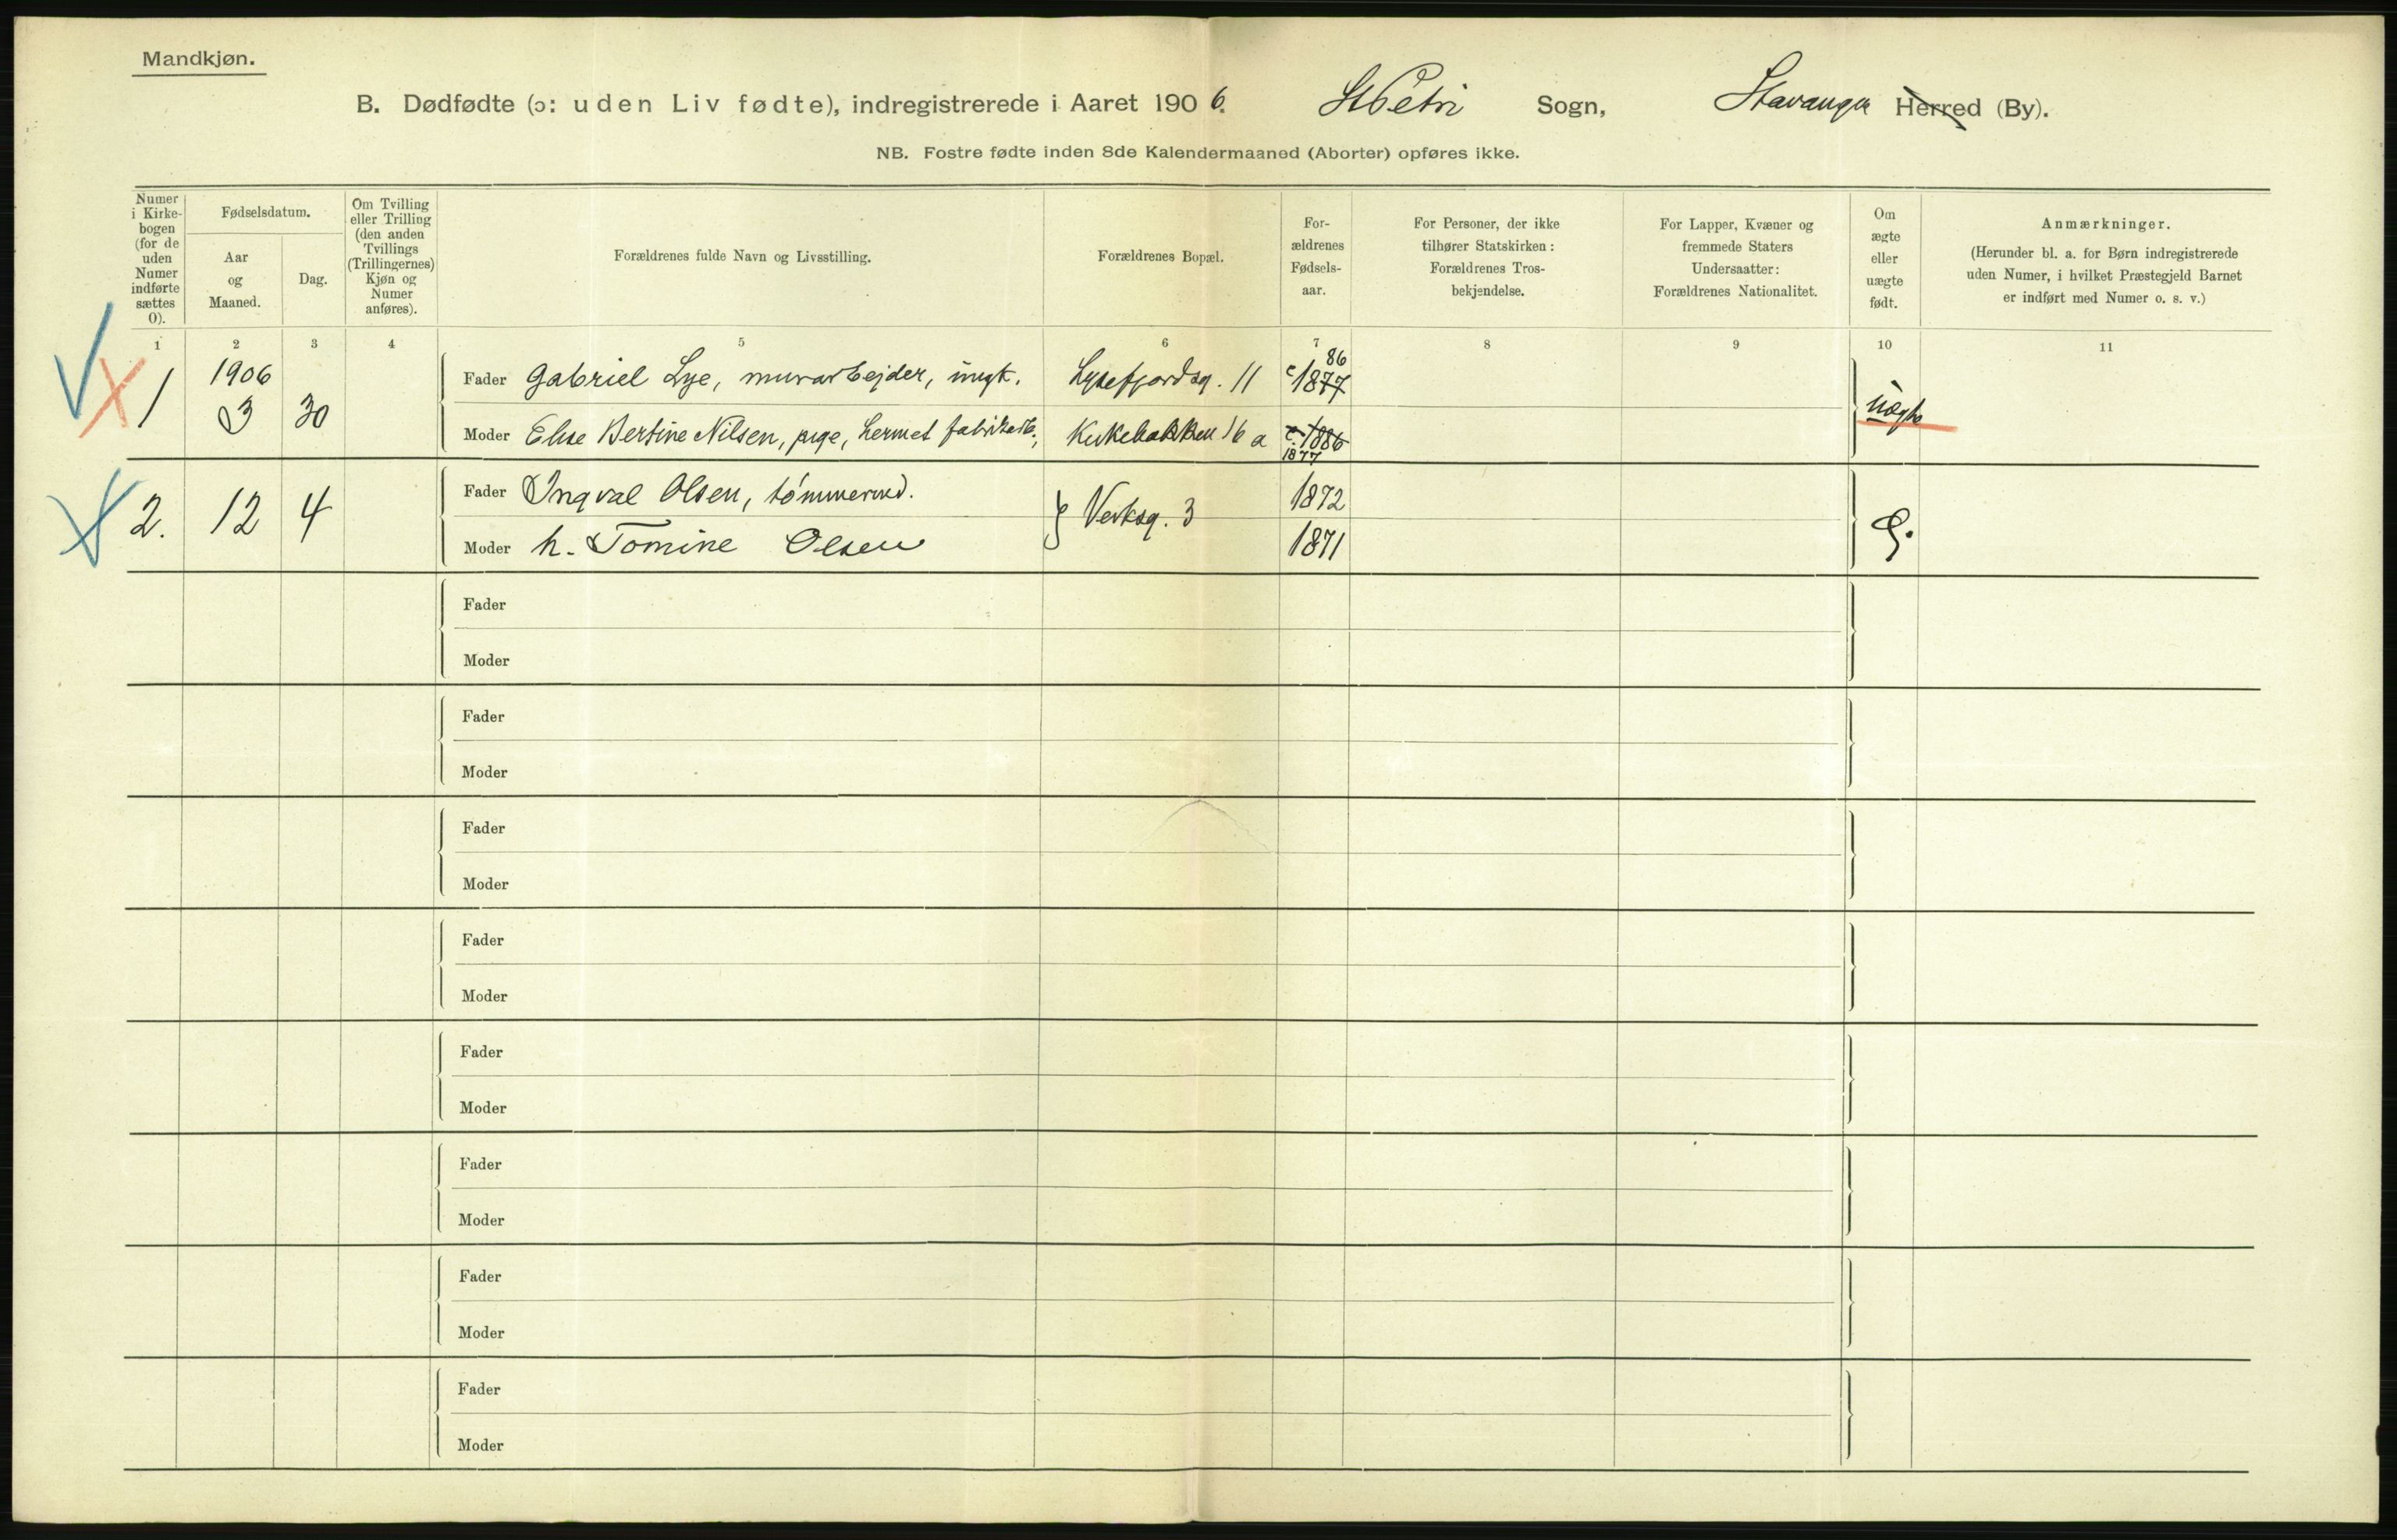 Mandkjøn.
B. Dødfødte (ɔ: uden Liv fødte), indregistrerede i Aaret 1906. St Petri Sogn, Stavanger Herred (By).
NB. Fostre fødte inden 8de Kalendermaaned (Aborter) opføres ikke.
Numer i Kirkebogen (for de uden Numer indførte sættes 0).
Fødselsdatum.
Aar og Maaned.
Dag.
Om Tvilling eller Trilling (den anden Tvillings (Trillingernes) Kjøn og Numer anføres).
Forældrenes fulde Navn og Livsstilling.
Forældrenes Bopæl.
For-ældrenes Fødsels-aar.
For Personer, der ikke tilhører Statskirken: Forældrenes Tros-bekjendelse.
For Lapper, Kvæner og fremmede Staters Undersaatter: Forældrenes Nationalitet.
Om ægte eller uægte født.
Anmærkninger.
(Herunder bl. a. for Børn indregistrerede uden Numer, i hvilket Præstegjeld Barnet er indført med Numer o. s. v.)
1 2 3 4 5 6 7 8 9 10 11
1 1906 3 30 Fader Gabriel Lye, murarbejder, ungk. Lysefjordsg. 11 c 1877 86 uægte
Moder Elise Bertine Nilsen, pige, hermet fabrikarb., Kirkebakken 16 a c. 1886 1877
2. 12 4 Fader Ingval Olsen, tømmermd. Verksg. 3 1872
Moder h. Tomine Olsen 1871
Fader
Moder
Fader
Moder
Fader
Moder
Fader
Moder
Fader
Moder
Fader
Moder
Fader
Moder
Fader
Moder